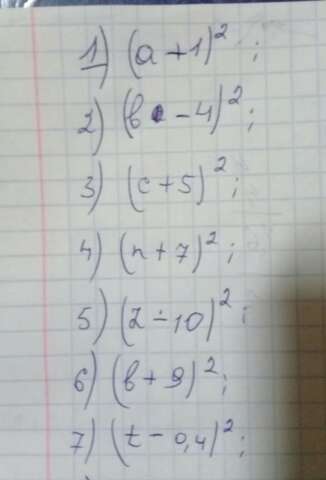 1) (a + 1)²;
2) (b - 4)²;
3) (c + 5)²;
4) (n + 7)²;
5) (z - 10)²;
6) (b + 9)²;
7) (t - 0,4)²;